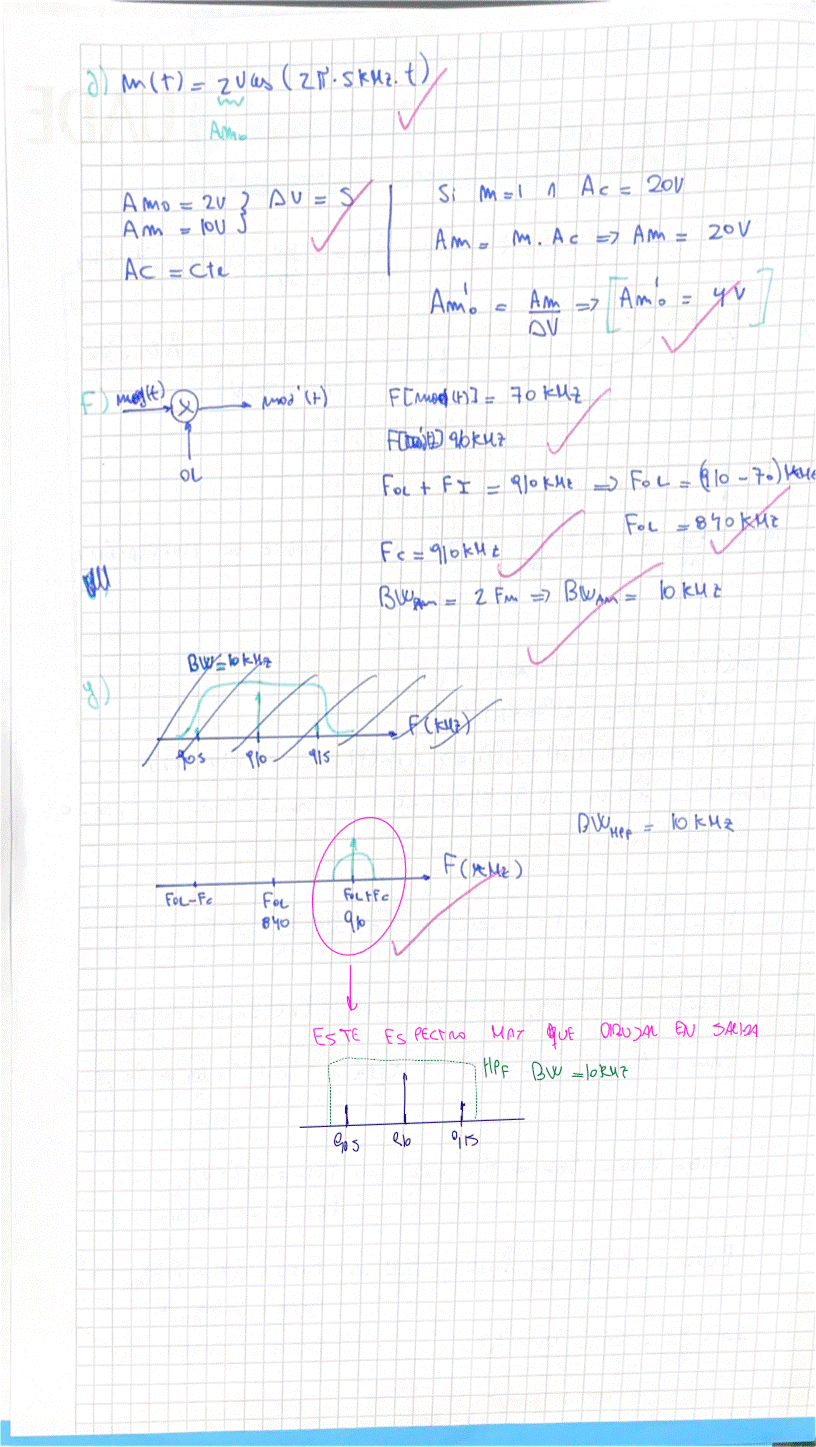 d) m(t) = 2V cos (2π·5kHz·t)
Amo
Amo = 2V } ΔV = 5
Am = 10V
Ac = cte
Si m=1 ∧ Ac = 20V
Am = m. Ac => Am = 20V
Am'o = Am/ΔV => [Am'o = 4V]
F) mod(t) X mod'(t)
OL
F[mod(t)] = 70 kHz
910kHz
FOL + FI = 910kHz => FOL = (910-70)kHz
FOL = 840kHz
Fc = 910kHz
BWAM = 2 Fm => BWAM = 10 kHz
g)
BW=10kHz
F(kHz)
905 910 915
BWHPF = 10 kHz
F(kHz)
FOL-Fc FOL FOL+Fc
840 910
ESTE ESPECTRO HAY QUE DIBUJAR EN SALIDA
HPF BW =10kHz
905 910 915